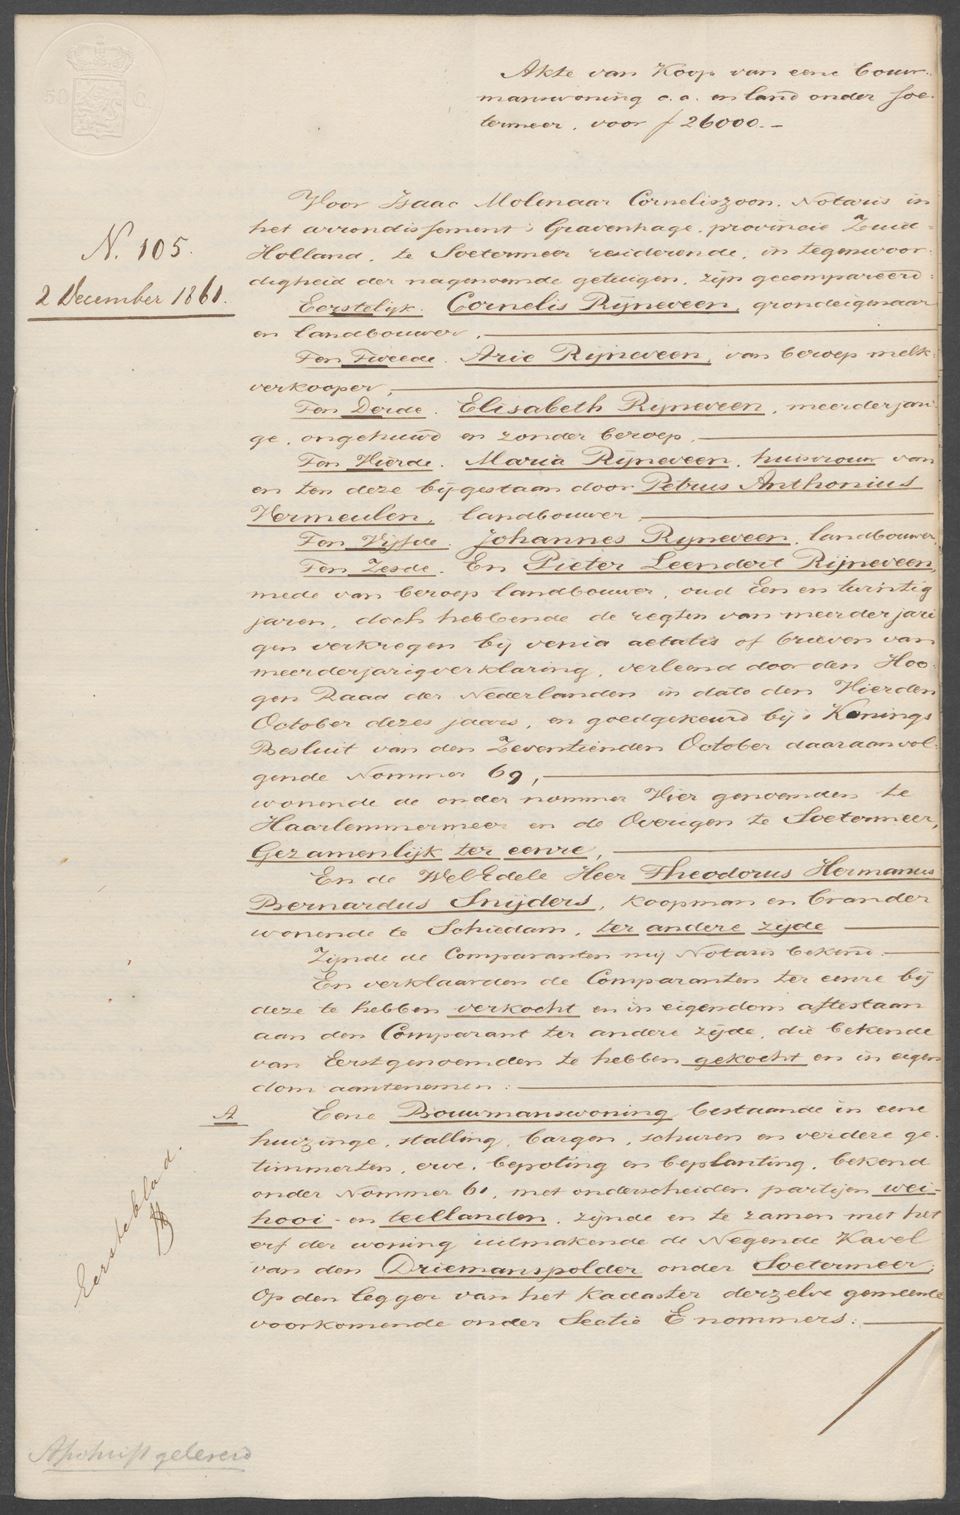 50 C
Akte van Koop van eene bouw-
manswoning c.a. en land onder Soe-
termeer, voor ƒ 26000.-
N. 105.
2 December 1861.
Voor Isaac Molenaar Corneliszoon, Notaris in
het arrondissement 's Gravenhage, provincie Zuid-
Holland, te Soetermeer resideerende, in tegenwoor-
digheid der nagenoemde getuigen, zijn gecompareerd:
Eerstelijk. Cornelis Rijneveen, grondeigenaar
en landbouwer,
Ten Tweede. Arie Rijneveen, van beroep melk-
verkooper,
Ten Derde. Elisabeth Rijneveen, meerderjari
ge, ongehuwd en zonder beroep,
Ten Vierde. Maria Rijneveen, huisvrouw van
en ten deze bijgestaan door Petrus Anthonius
Vermeulen, landbouwer,
Ten Vijfde. Johannes Rijneveen, landbouwer,
Ten Zesde. En Pieter Leendert Rijneveen,
mede van beroep landbouwer, oud Een en twintig
jaren, doch hebbende de regten van meerderjari
gen verkregen bij venia aetatis of brieven van
meerderjarigverklaring, verleend door den Hoo-
gen Raad der Nederlanden in dato den Vierden
October dezes jaars, en goedgekeurd bij 's Konings
Besluit van den Zeventienden October daaraanvol-
gende Nommer 69,
wonende de onder nommer Vier genoemden te
Haarlemmermeer en de Overigen te Soetermeer,
Gezamenlijk ter eenre,
En de WelEdele Heer Theodorus Hermanus
Bernardus Snijders, koopman en brander
wonende te Schiedam, ter andere zijde
Zijnde de Comparanten mij Notaris bekend.
En verklaarden de Comparanten ter eenre bij
deze te hebben verkocht en in eigendom aftestaan
aan den Comparant ter andere zijde, die bekende
van Eerstgenoemden te hebben gekocht en in eigen
dom aantenemen:
A Eene Bouwmanswoning, bestaande in eene
huizinge, stalling, bargen, schuren en verdere ge-
timmerten, erve, bepoting en beplanting, bekend
onder Nommer 61, met onderscheiden partijen wei-
hooi- en teellanden, zijnde en te zamen met het
erf der woning uitmakende de Negende Kavel
van den Driemanspolder onder Soetermeer,
Op den legger van het kadaster derzelve gemeente
voorkomende onder Sectie E nommers:
Eersteblad.
Afschrift geleverd